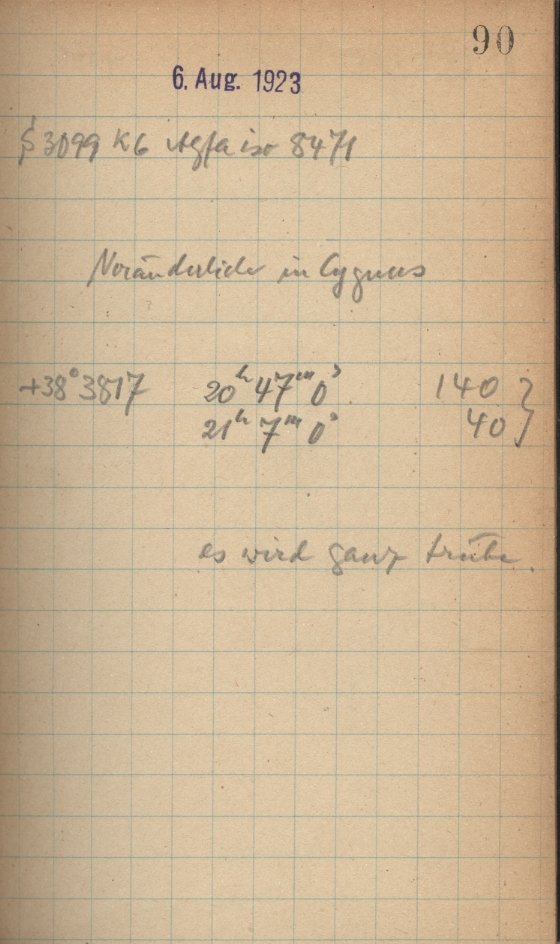 90
6. Aug. 1923
§ 3099 K6 Agfa iso 8471
Veränderliche in Cygnus
+38° 3817 20ʰ 47ᵐ 0ˢ 140 }
21ʰ 7ᵐ 0ˢ 40 }
es wird ganz trübe.